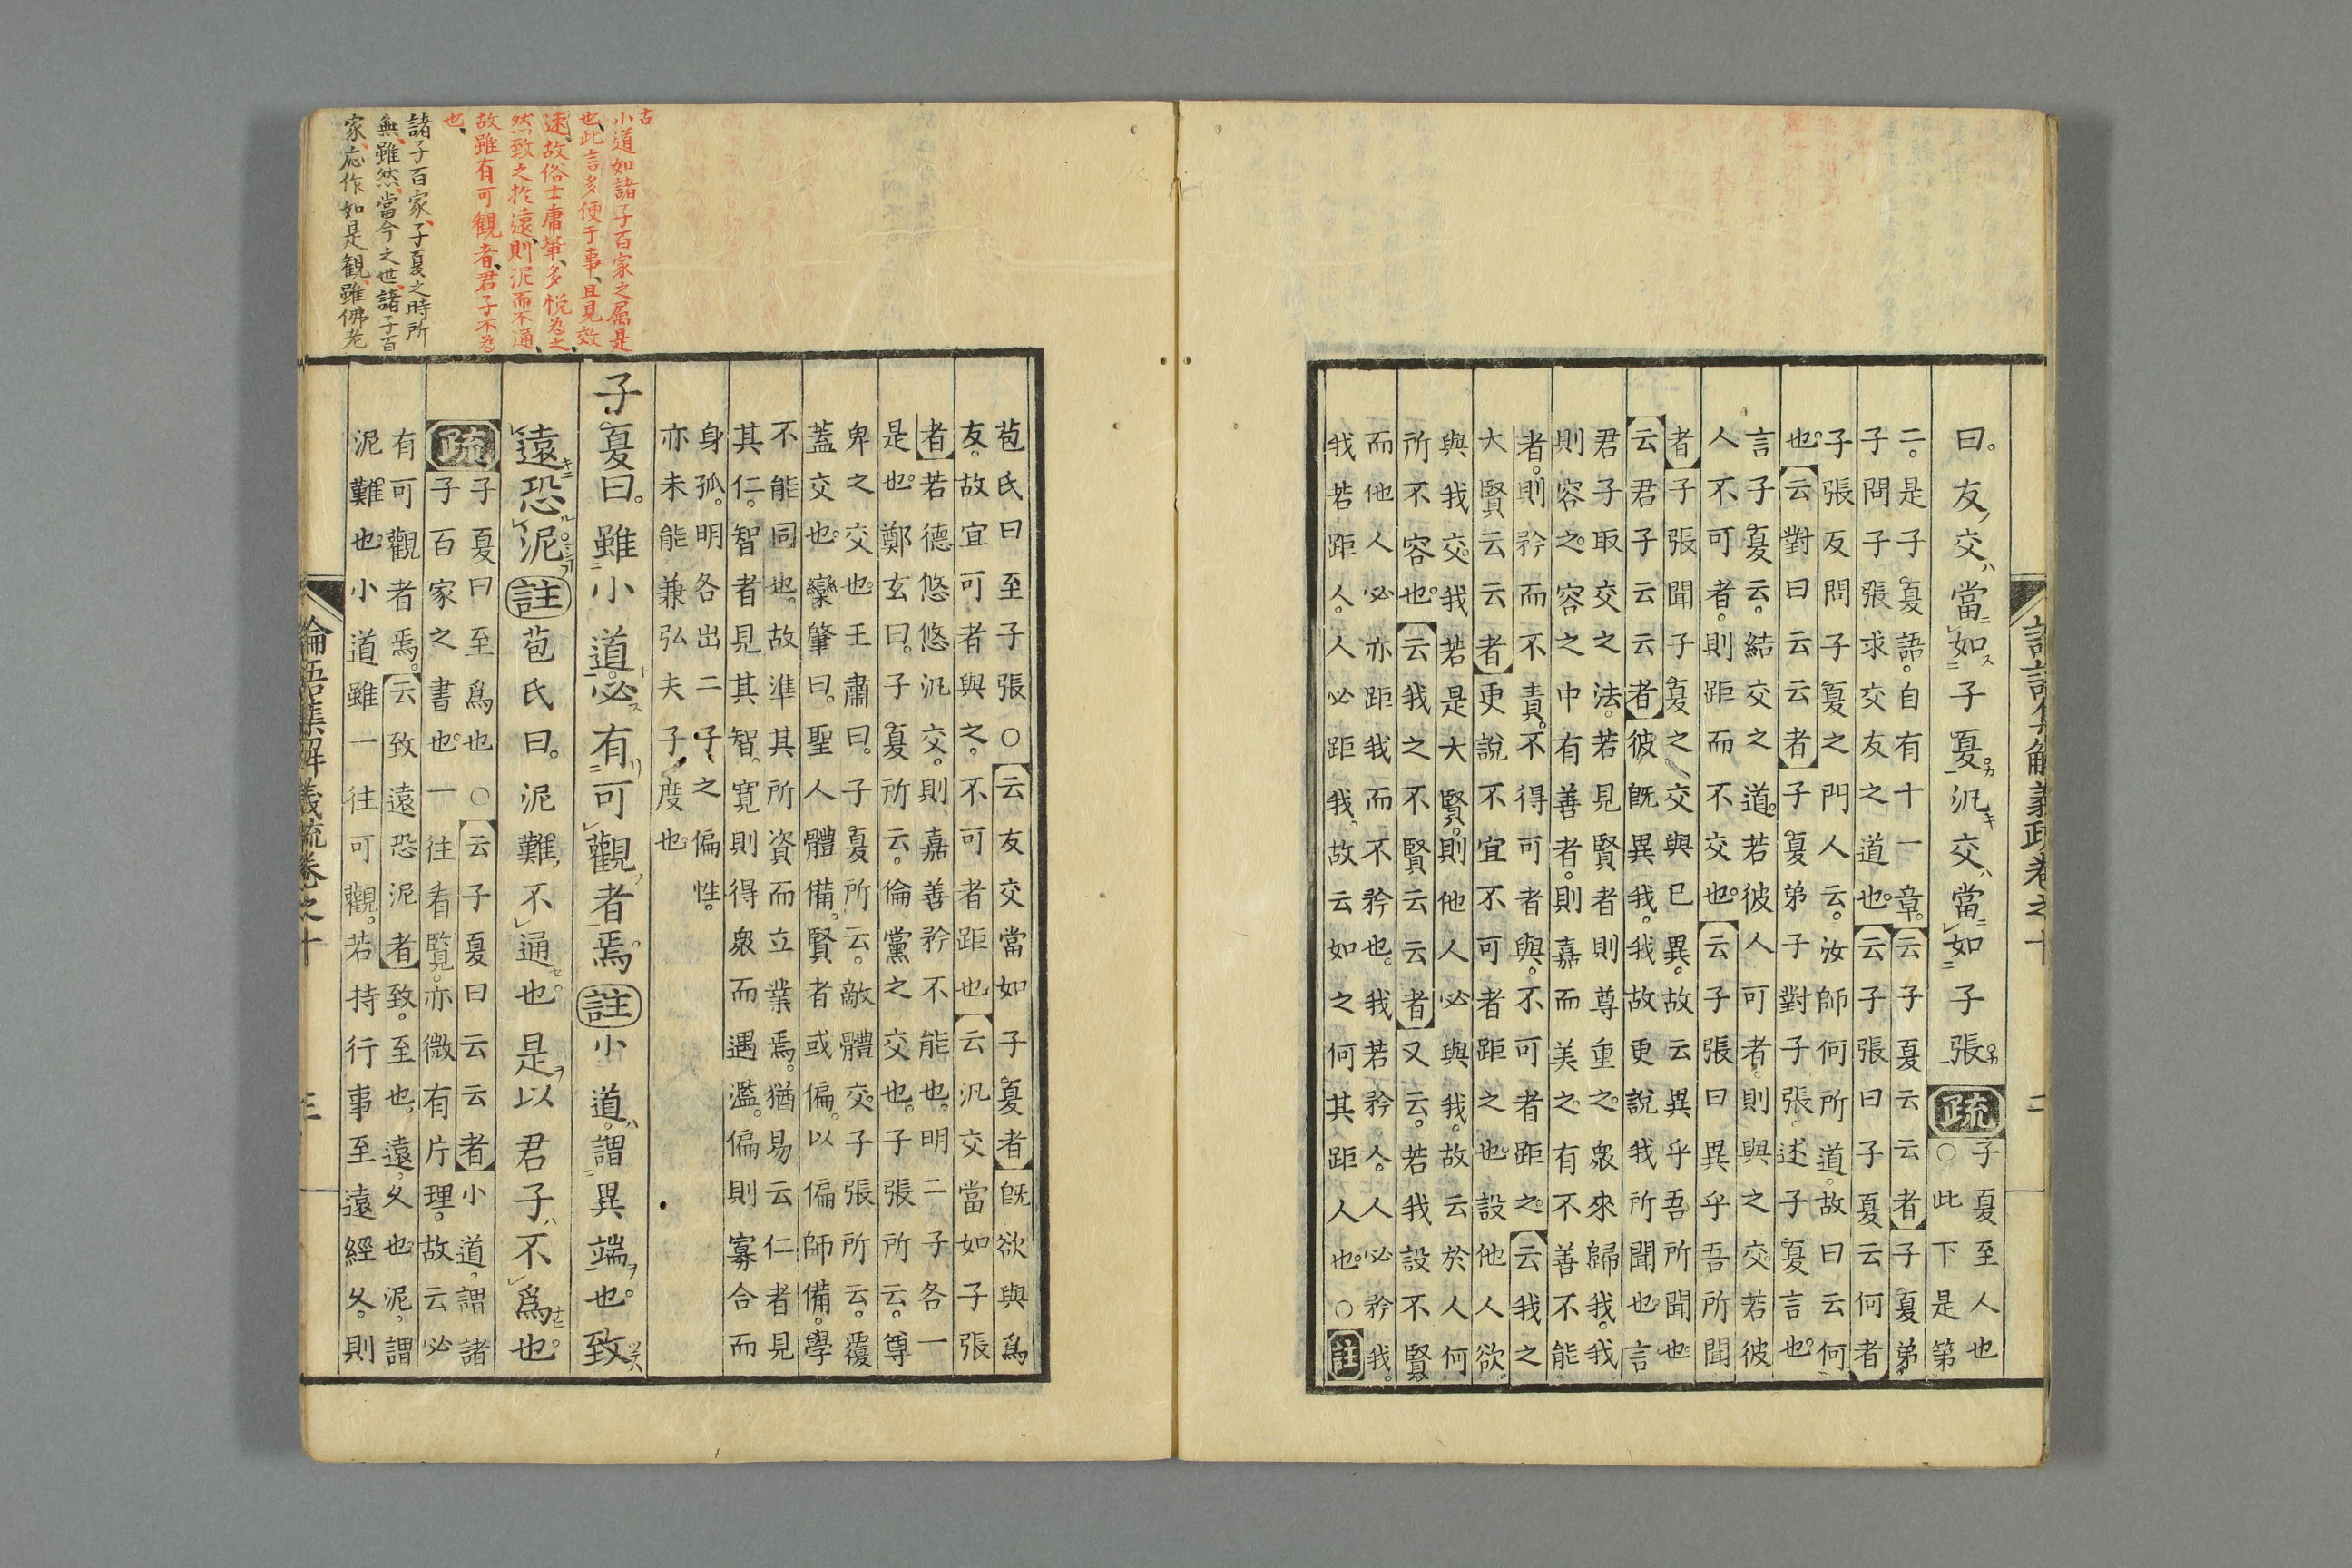 論語集解義疏卷之十 二
曰。友交當如子夏。汎交當如子張疏子夏至人也
○此下是第
二。是子夏語。自有十一章。云子夏云云者子夏弟
子問子張求交友之道也。云子張曰子夏云何者
子張反問子夏之門人云。汝師何所道。故曰云何
也。云對曰云云者子夏弟子對子張述子夏言也。
言子夏云。結交之道。若彼人可者。則與之交。若彼
人不可者。則距而不交也。云子張曰異乎吾所聞
者子張聞子夏之交與已異。故云異乎吾所聞也。
云君子云云者彼旣異我。我故更說我所聞也。言
君子取交之法。若見賢者則尊重之。衆來歸我。我
則容之。容之中有善者。則嘉而美之。有不善不能
者。則矜而不責。不得可者與。不可者距之。云我之
大賢云云者更說不宜不可者距之也。設他人欲
與我交。我若是大賢。則他人必與我。故云於人何
所不容也。云我之不賢云云者又云。若我設不賢。
而他人必亦距我而不矜也。我若矜人。人必矜我。
我若距人。人必距我。故云如之何其距人也。○註
苞氏曰至子張○云友交當如子夏者旣欲與爲
友。故宜可者與之。不可者距也云汎交當如子張
者若德悠悠汎交。則嘉善矜不能也。明二子各一
是也。鄭玄曰。子夏所云。倫黨之交也。子張所云。尊
卑之交也。王肅曰。子夏所云。敵體交。子張所云。覆
蓋交也。欒肇曰。聖人體備。賢者或偏。以偏師備。學
不能同也。故準其所資而立業焉。猶易云仁者見
其仁。智者見其智。寬則得衆而遇濫。偏則寡合而
身孤。明各出二子之偏性。
亦未能兼弘夫子度也
子夏曰。雖小道。必有可觀者焉。註小道。謂異端也。致
遠恐泥註苞氏曰。泥難不通也是以君子不爲也。
疏子夏曰至爲也○云子夏曰云云者小道謂諸
子百家之書也。一往看覽。亦微有片理。故云必
有可觀者焉。云致遠恐泥者致。至也。遠。久也。泥。謂
泥難也。小道雖一往可觀。若持行事至遠經久。則
論語集解義疏卷之十 三
古
小道如諸子百家之属是
也、此言多便于事、且見效
速、故俗士庸輩、多悦為之、
然致之於遠、則泥而不通、
故雖有可觀者、君子不為
也、
諸子百家、子夏之時所
無、雖然、當今之世、諸子百
家、応作如是観、雖佛老